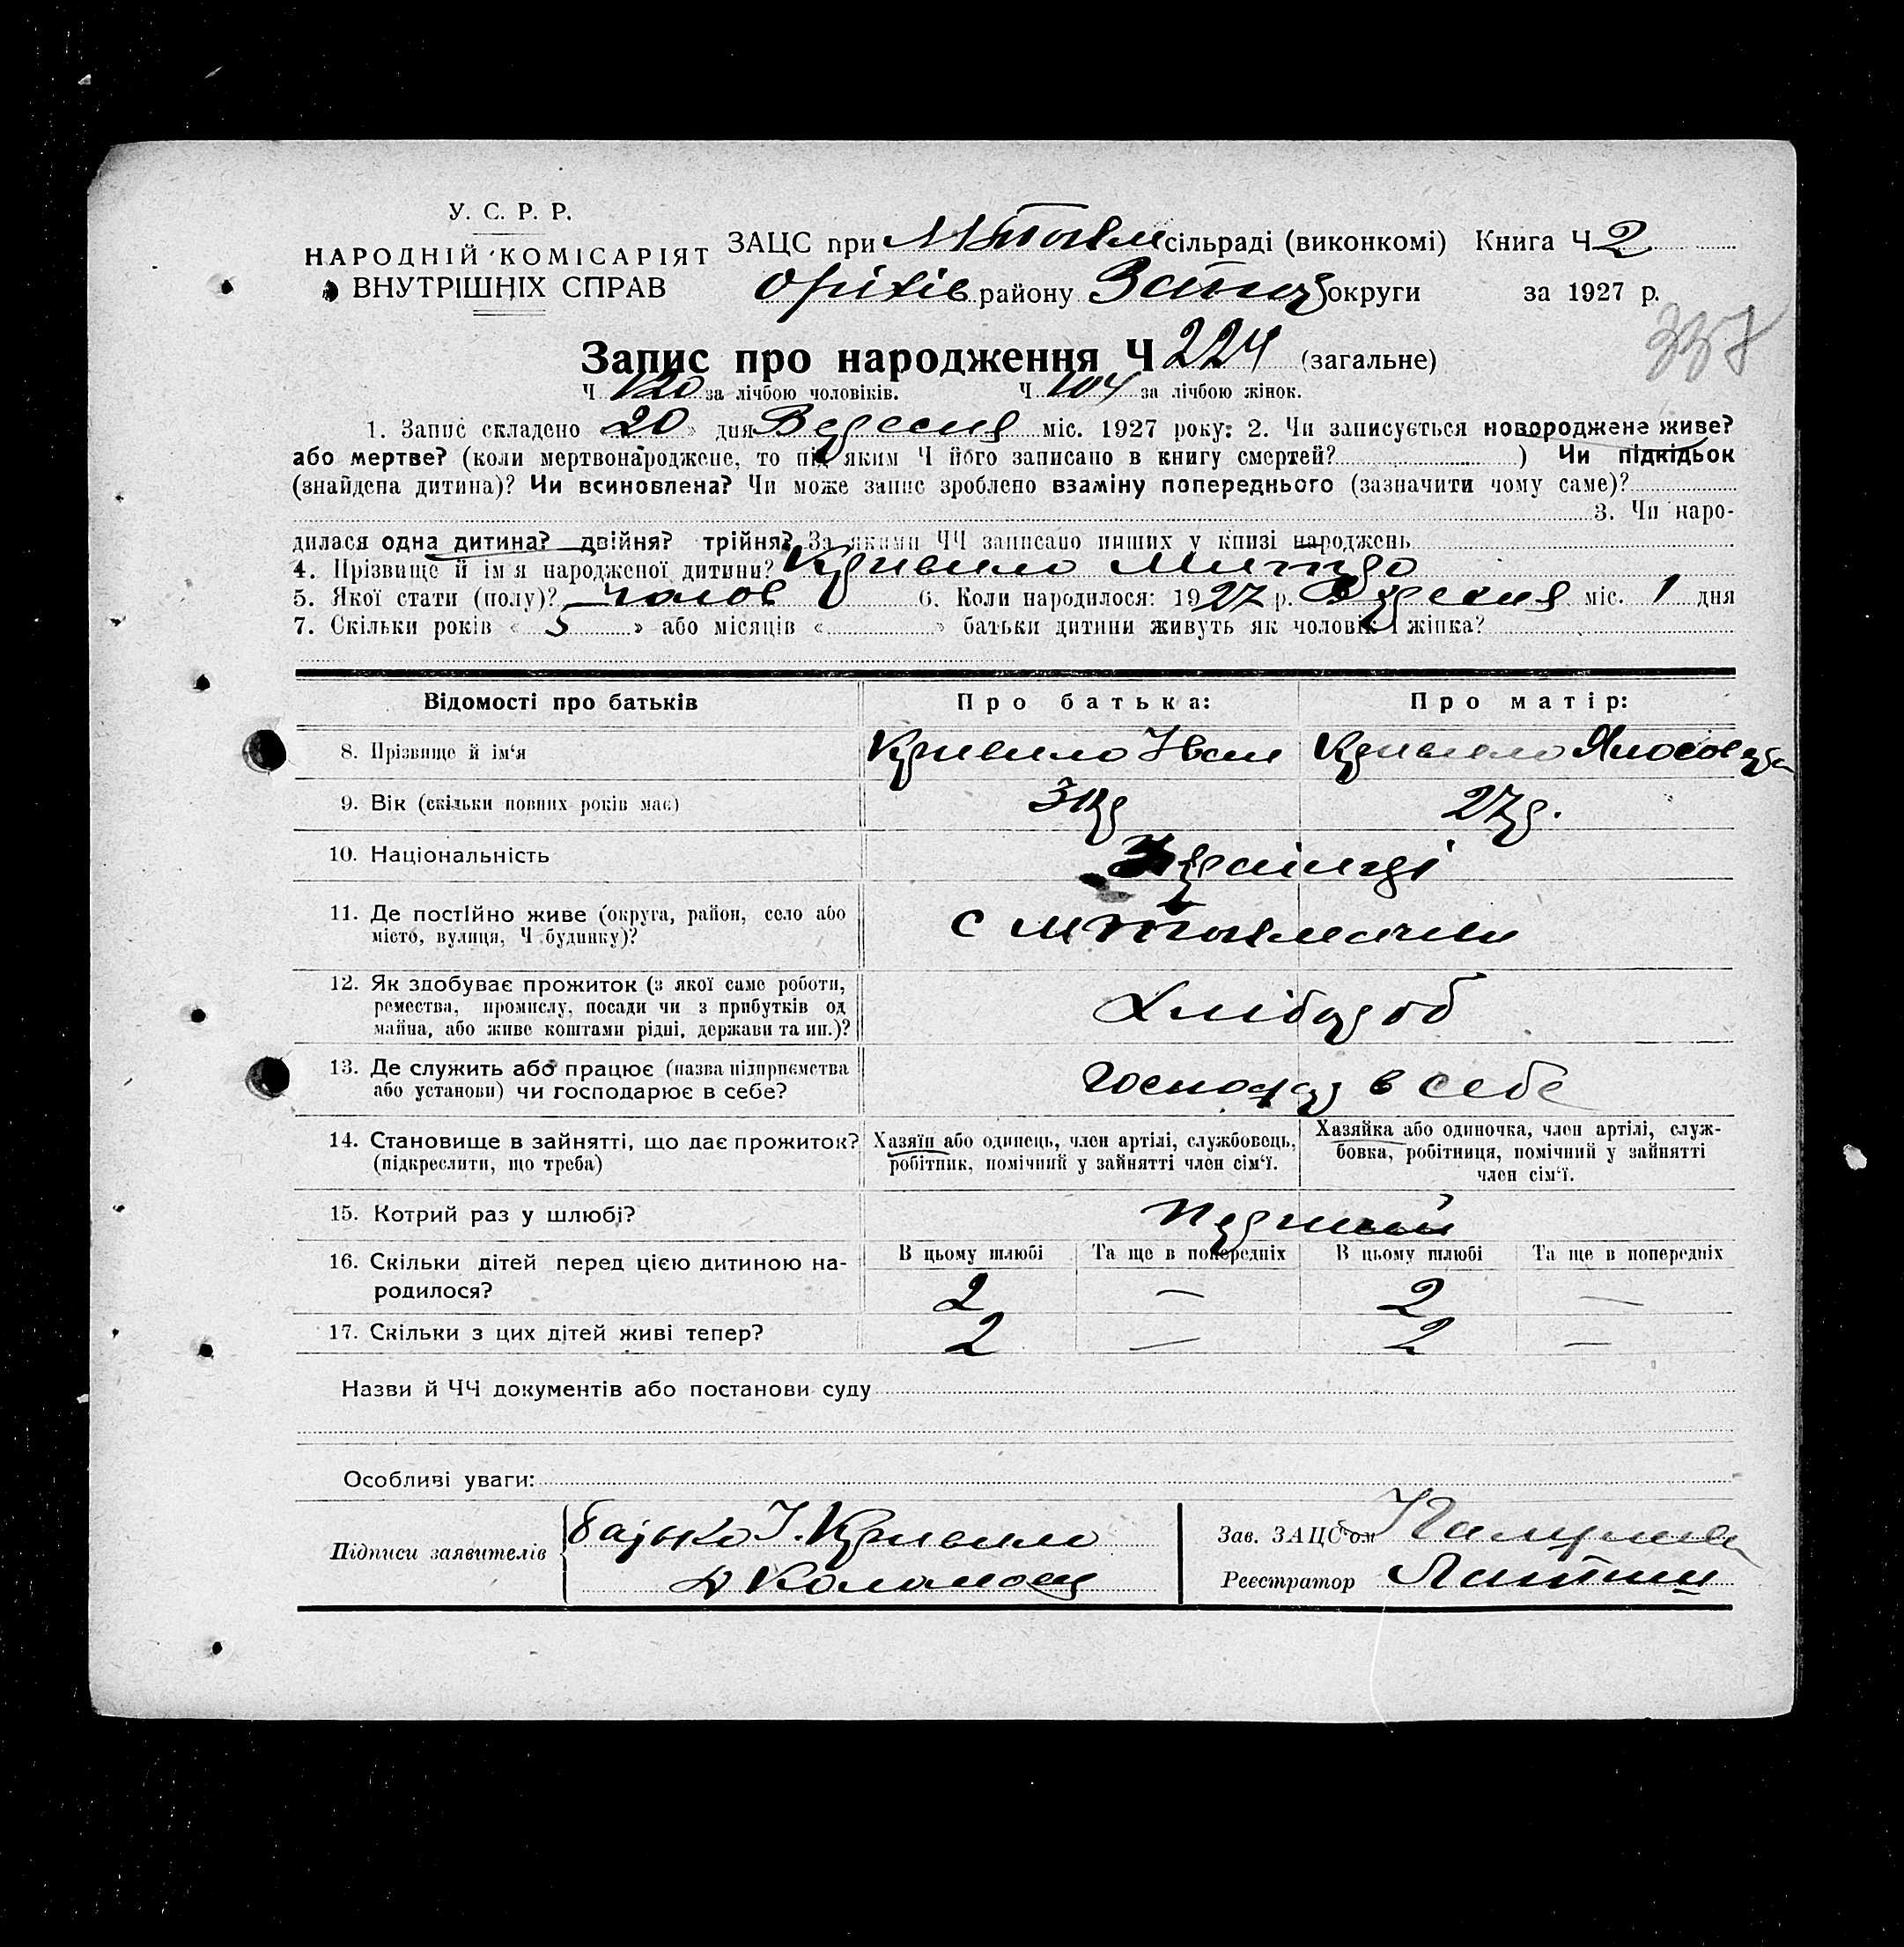 У. С. Р. Р.
НАРОДНІЙ КОМІСАРІЯТ
ВНУТРІШНІХ СПРАВ
ЗАЦС при М Токм сільраді (виконкомі) Книга Ч 2
Оріхів району Запоріз округи за 1927 р.
337
Запис про народження Ч 224 (загальне)
Ч 120 за лічбою чоловіків. Ч 104 за лічбою жінок.
1. Запис складено «20» дня Вересня міс. 1927 року: 2. Чи записується новороджене живе?
або мертве? (коли мертвонароджене, то під яким Ч його записано в книгу смертей? ) Чи підкідьок
(знайдена дитина)? Чи всиновлена? Чи може запис зроблено взаміну попереднього (зазначити чому саме)?
3. Чи наро-
дилася одна дитина? двійня? трійня? За якими ЧЧ записано инших у книзі народжень
4. Прізвище й ім'я народженої дитини? Кривило Митро
5. Якої стати (полу)? чолов 6. Коли народилося: 1927 р. Вересня міс. 1 дня
7. Скільки років « 5 » або місяців « » батьки дитини живуть як чоловік і жінка?
Відомості про батьків Про батька: Про матір:
8. Прізвище й ім'я Кривило Іван Кривило
9. Вік (скільки повних років має) 27р.
10. Національність Українці
11. Де постійно живе (округа, район, село або
місто, вулиця, Ч будинку)? с М Токмачки
12. Як здобуває прожиток (з якої саме роботи,
ремества, промислу, посади чи з прибутків од
майна, або живе коштами рідні, держави та ин.)? Хлібороб
13. Де служить або працює (назва підприємства
або установи) чи господарює в себе? господар в себе
14. Становище в зайнятті, що дає прожиток?
(підкреслити, що треба)
Хазяїн або одинець, член артілі, службовець,
робітник, помічний у зайнятті член сім'ї.
Хазяйка або одиночка, член артілі, служ-
бовка, робітниця, помічний у зайнятті
член сім'ї.
15. Котрий раз у шлюбі? Первий
В цьому шлюбі Та ще в попередніх В цьому шлюбі Та ще в попередніх
16. Скільки дітей перед цією дитиною на-
родилося? 2 — 2 —
17. Скільки з цих дітей живі тепер? 2 — 2 —
Назви й ЧЧ документів або постанови суду
Особливі уваги:
Підписи заявителів батько І. Кривило
Зав. ЗАЦС'ом
Реєстратор